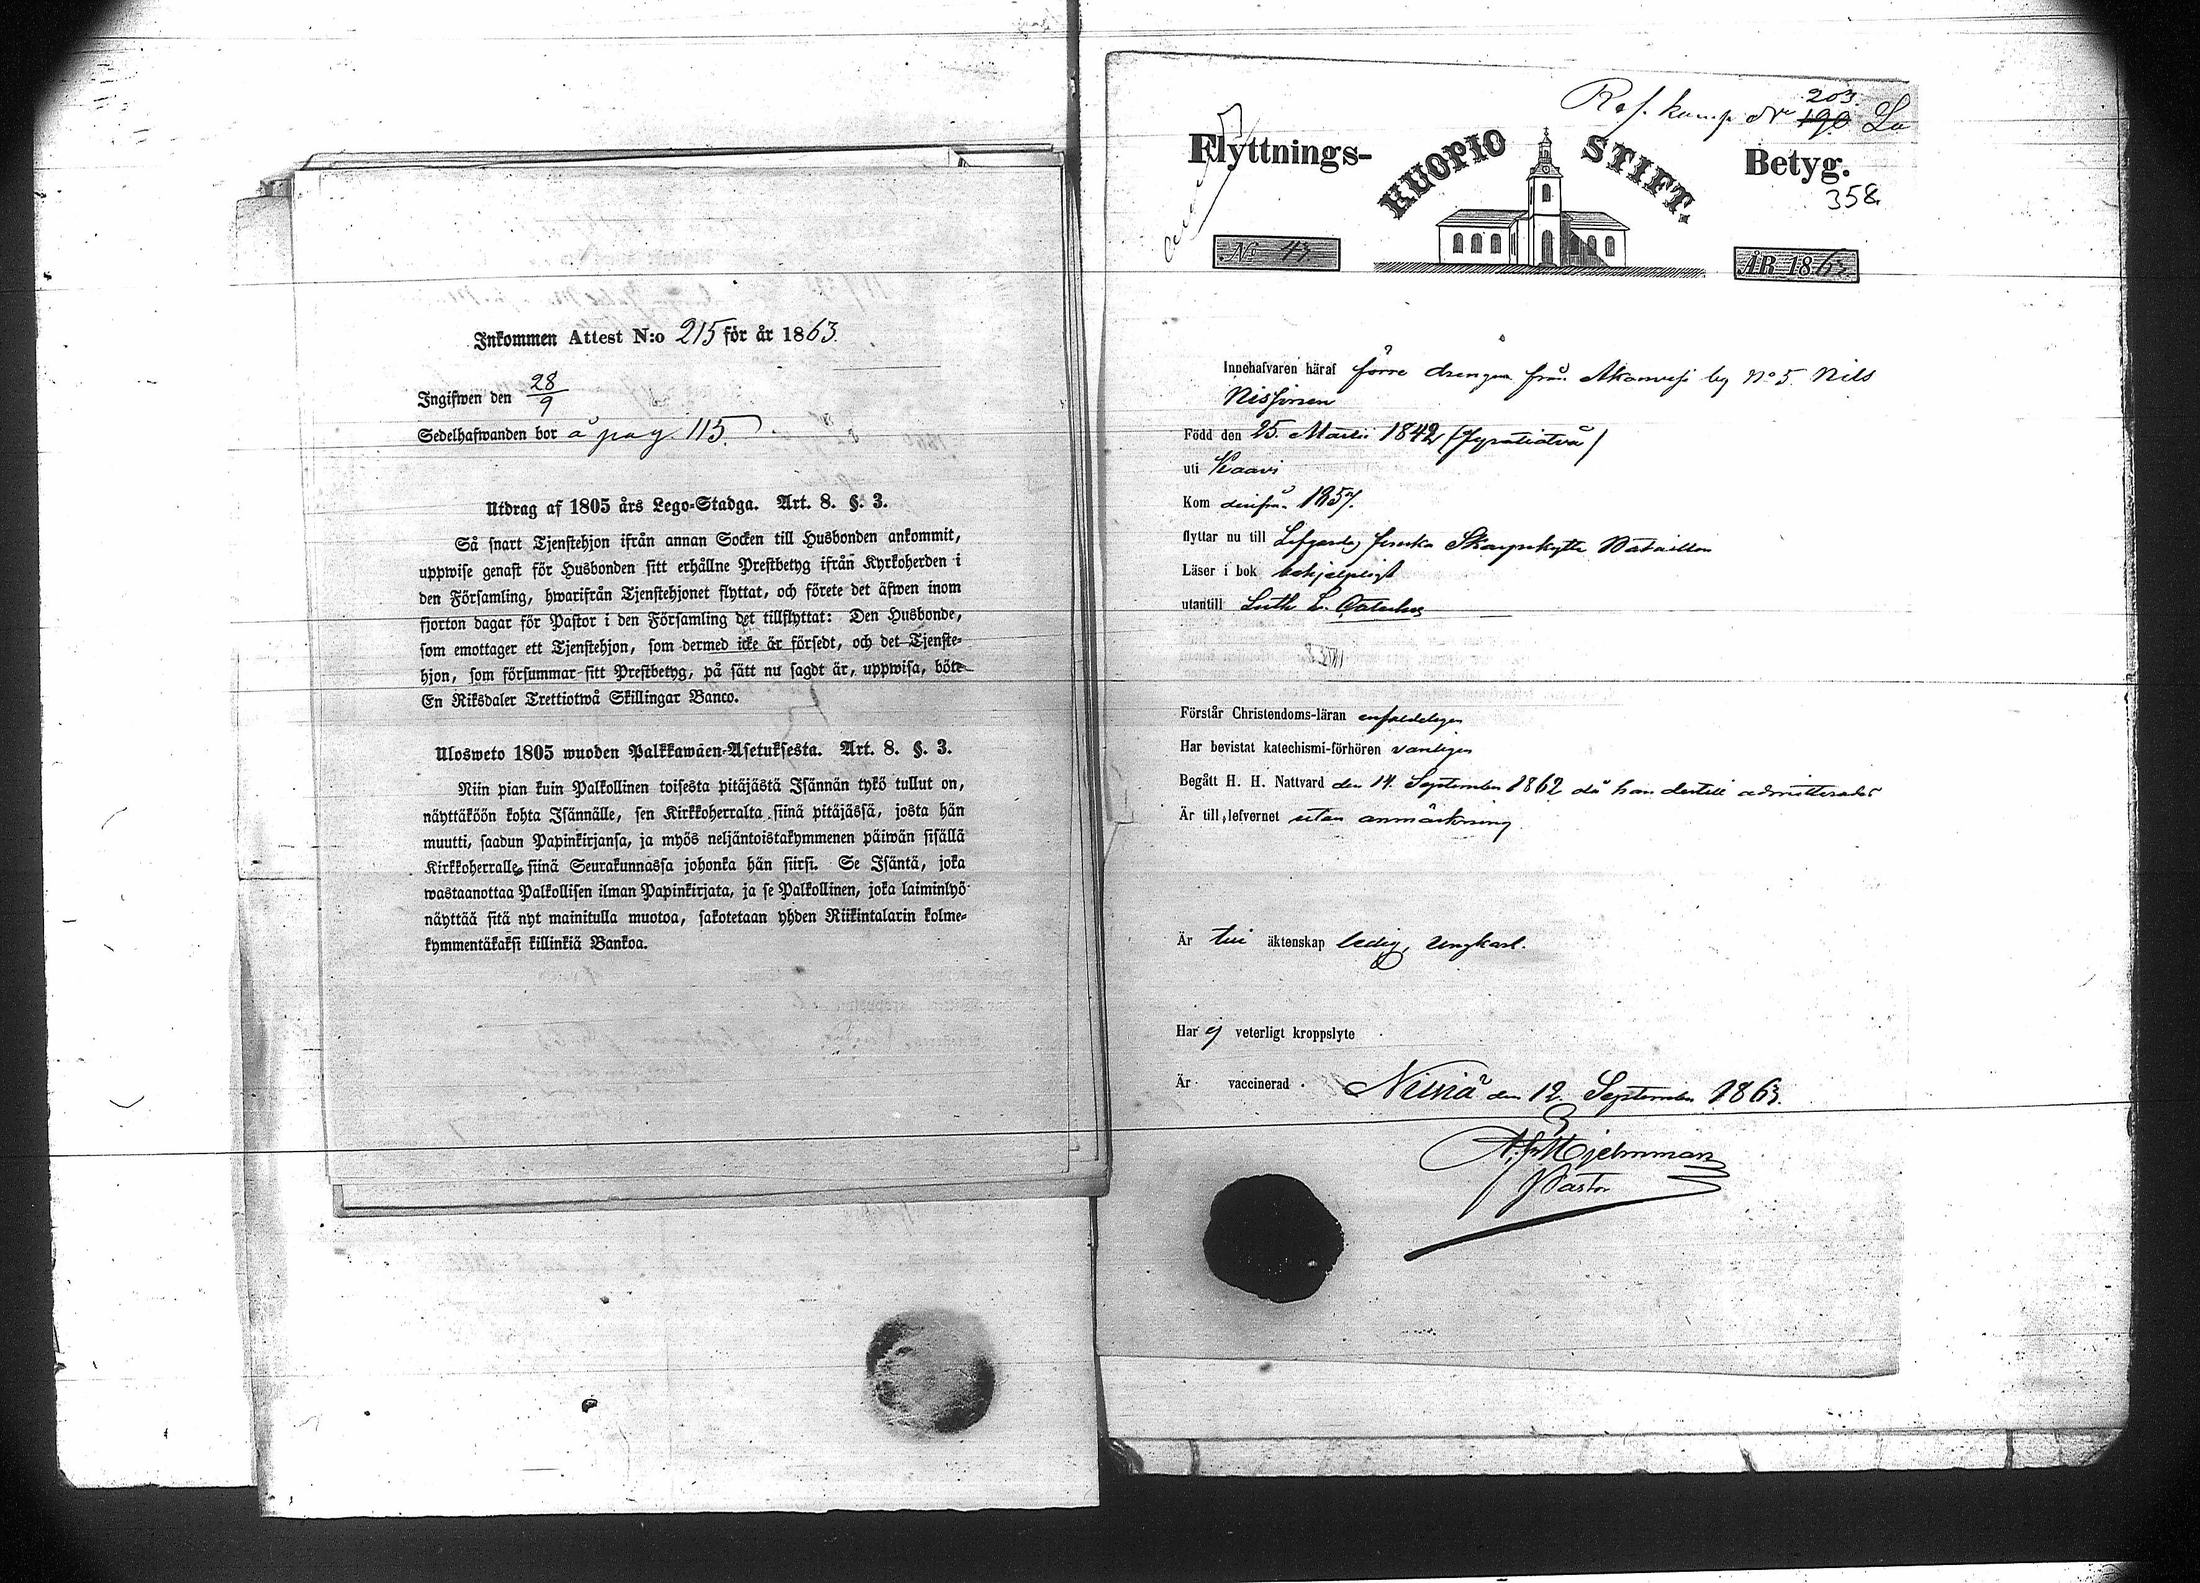 Inkommen Attest N:o 215 för år 1863.
Ingifwen den 28/9
Sedelhafwanden bor å pag. 115.
Utdrag af 1805 års Lego-Stadga. Art. 8. §. 3.
Så snart Tjenstehjon ifrån annan Socken till Husbonden ankommit,
uppwise genast för Husbonden sitt erhållne Prestbetyg ifrån Kyrkoherden i
den Församling, hwarifrån Tjenstehjonet flyttat, och förete det äfwen inom
fjorton dagar för Pastor i den Församling det tillflyttat: Den Husbonde,
som emottager ett Tjenstehjon, som dermed icke är försedt, och det Tjenste-
hjon, som försummar sitt Prestbetyg, på sätt nu sagdt är, uppwisa, böte
En Riksdaler Trettiotwå Skillingar Banco.
Ulosweto 1805 wuoden Palkkawäen-Asetuksesta. Art. 8. §. 3.
Niin pian kuin Palkollinen toisesta pitäjästä Isännän tykö tullut on,
näyttäköön kohta Isännälle, sen Kirkkoherralta siinä pitäjässä, josta hän
muutti, saadun Papinkirjansa, ja myös neljäntoistakymmenen päiwän sisällä
Kirkkoherralle siinä Seurakunnassa johonka hän siirsi. Se Isäntä, joka
wastaanottaa Palkollisen ilman Papinkirjata, ja se Palkollinen, joka laiminlyö
näyttää sitä nyt mainitulla muotoa, sakotetaan yhden Riikintalarin kolme-
kymmentäkaksi killinkiä Bankoa.
Ref. kump. No 203. 190
Flyttnings- KUOPIO STIFT. Betyg.
358.
No 43 ÅR 1863
Innehafvaren häraf förre drengen från Akonvesi by No 5. Nils
Nissinen
Född den 25. Martii 1842 (fyratiotvå)
uti Kaavi
Kom derifrån 1857.
flyttar nu till Lifgardes finska Skarpskytte Bataillon
Läser i bok behjelpligt
utantill Luth. L. Cateches
Förstår Christendoms-läran enfaldeligen
Har bevistat katechismi-förhören vanligen
Begått H. H. Nattvard den 14. September 1862 då han dertill admitterades
Är till lefvernet utan anmärkning
Är till äktenskap ledig, ungkarl.
Har ej veterligt kroppslyte
Är vaccinerad. Nilsiä den 12. September 1863.
Hjelmman
Pastor